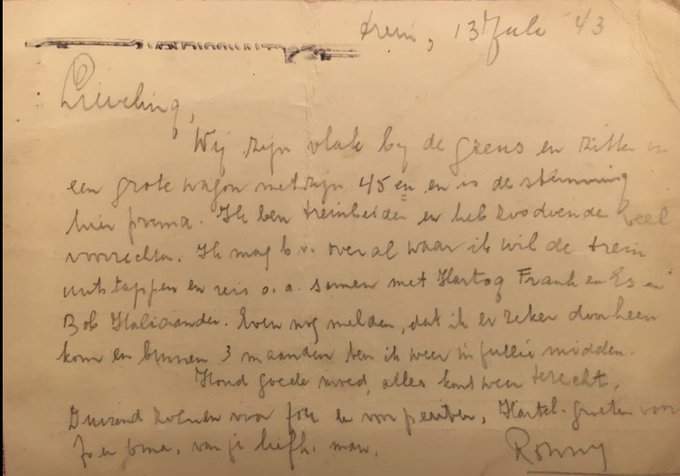 trein, 13 Juli 43
Lieveling,
Wij zijn vlak bij de grens en zitten in
een grote wagon met zijn 45 en en is de stemming
hier prima. Ik ben treinleider en heb zodoende veel
voorrechten. Ik mag b.v. overal waar ik wil de trein
uitstappen en reis o.a. samen met Hartog Frank en Es en
Bob Halicander. Even nog melden, dat ik er zeker doorheen
kom en binnen 3 maanden ben ik weer in jullie midden.
Houd goede moed, alles komt weer terecht.
Duizend voor jou en voor Hartel. groeten voor
Jo en oma. van je liefh. man.
Ronny